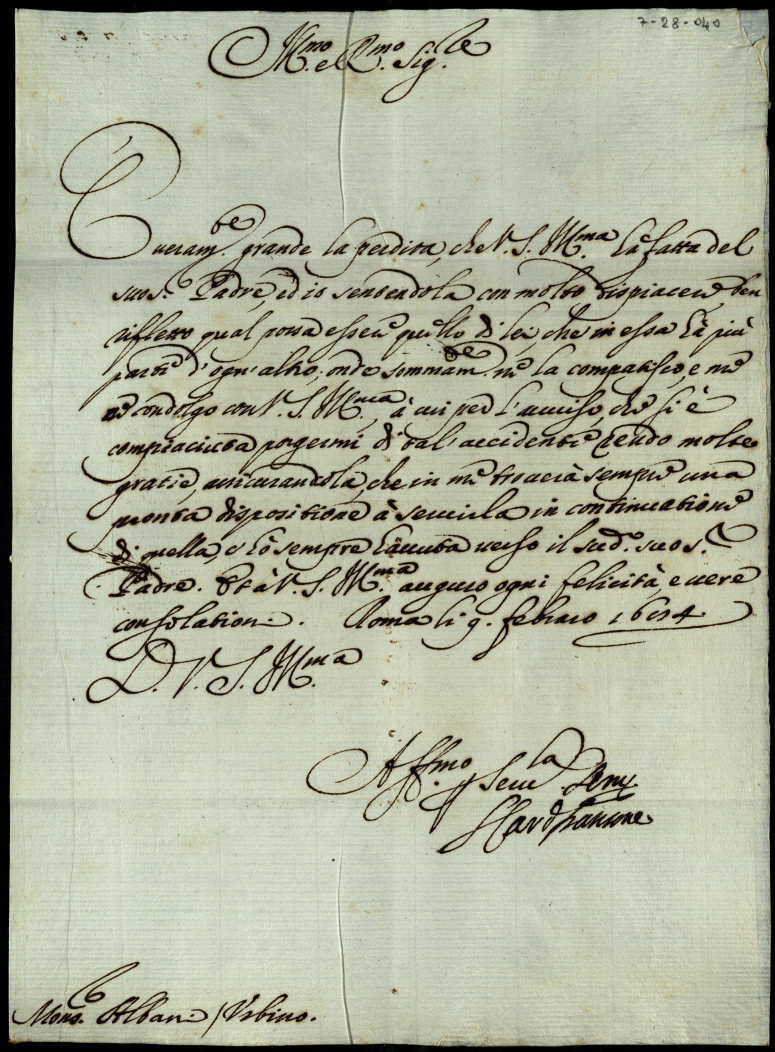 7-28-040
Ill.mo e R.mo Sig.re
È veram.te grande la perdita, che V. S. Ill.ma hà fatta del
suo s.r Padre, ed io sentendola con molto dispiacere ben
rifletto qual possa essere quello di lei che in essa hà più
parte d'ogn'altro; onde sommam.te ne la compatisco, e me
ne condolgo con V. S. Ill.ma, à cui per l'auuiso, che si è
compiaciuta porgermi di tal' accidente rendo molte
gratie, assicurandola, che in me trouerà sempre una
pronta dispositione à seruirla in continuatione
di quella, c' hò sempre hàuuta uerso il sud.o suo s.r
Padre. Et à V. S. Ill.ma auguro ogni felicità, e uere
consolationi. Roma li 9. febraro 1684
D. V. S. Ill.ma
Aff.mo per seru.la sempre
Il Card
Mons.r Albani / Urbino.